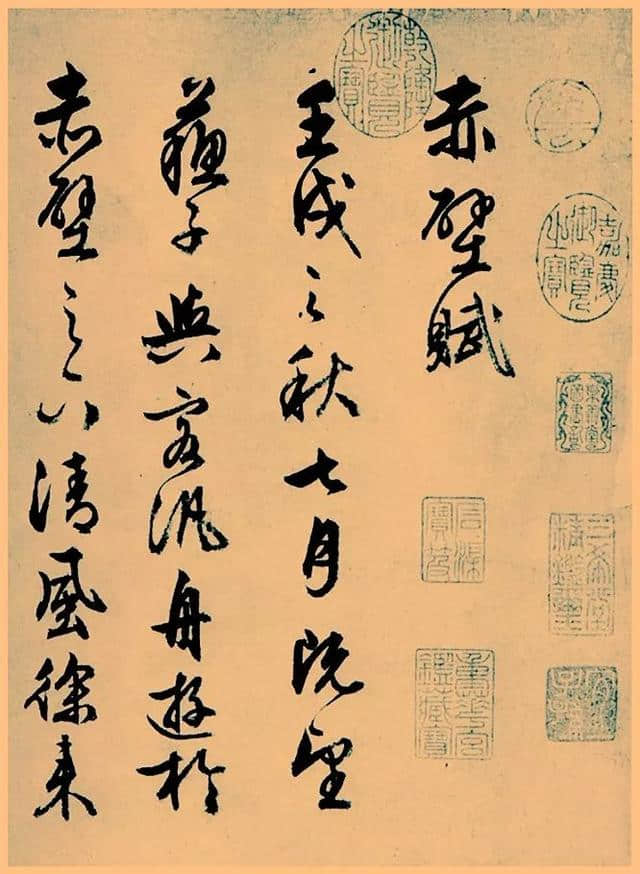 嘉慶御覽之寶
三希堂精鑑璽
宜子孫
乾隆御覽之寶
赤壁賦
石渠寶笈
重華宮鑑藏寶
壬戌之秋七月既望
蘇子與客汎舟遊於
赤壁之下清風徐來